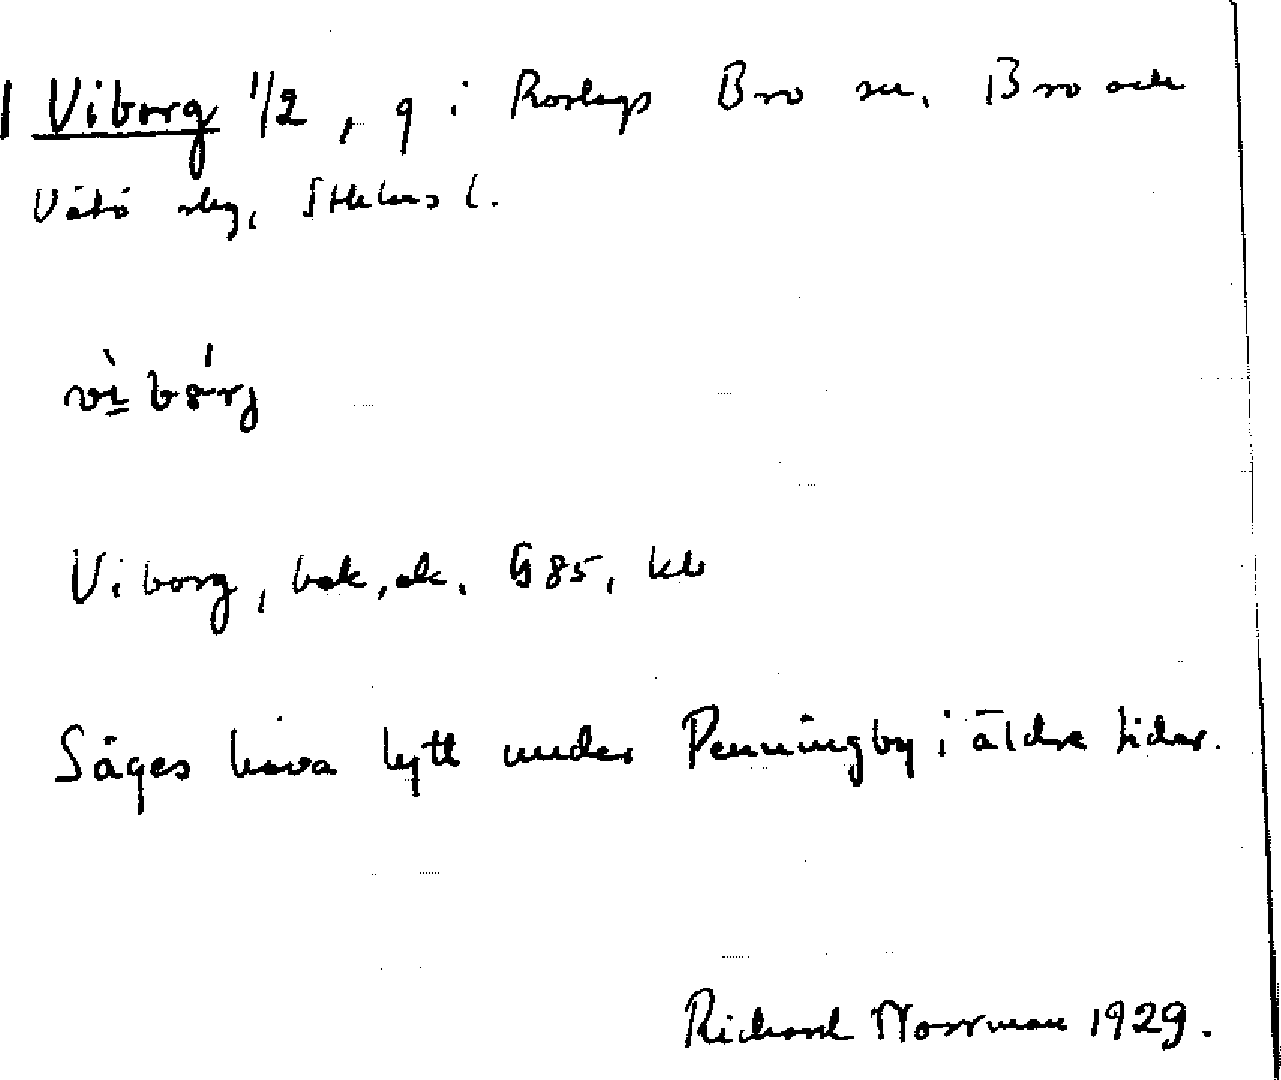 Viborg 1/2, g i Roslags Bro sn. Bro och
Vätö skg, Sthlms l.
Viborg, bok, ek. G 85, kb
Säges hava lytt under Penningby i äldre tider.
Richard Norrman 1929.